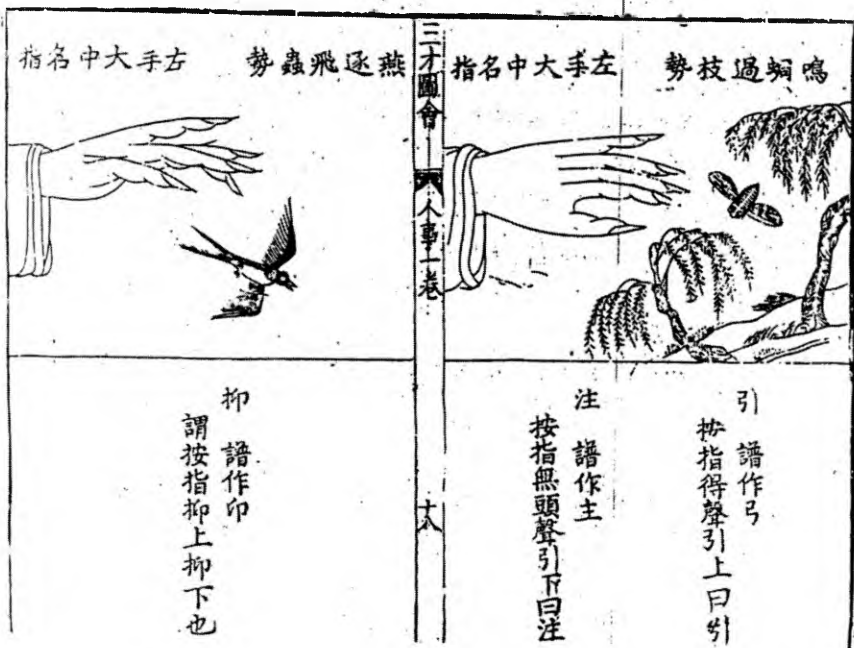 鳴蜩過枝勢
左手大中名指
引　譜作弓
按指得聲引上曰引
注　譜作主
按指無頭聲引下曰注
三才圖會
人事一卷
十八
燕逐飛蟲勢
左手大中名指
抑　譜作印
謂按指抑上抑下也